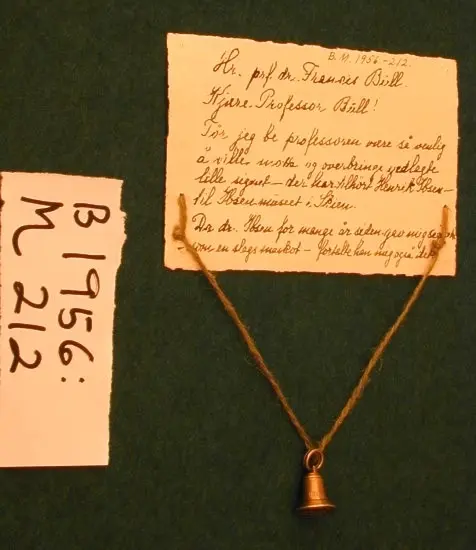 B.M. 1956-212.
Hr. prf. dr. Francis Bull.
Kjære Professor Bull!
Tør jeg be professoren være så venlig
å ville motta og overbringe vedlagte
lille signet – der har tilhört Henrik Ibsen –
til Ibsenmuseet i Skien.
Da dr. Ibsen for mange år siden gav mig
som en slags maskot – fortalte han meg også
B 1956:
M 212